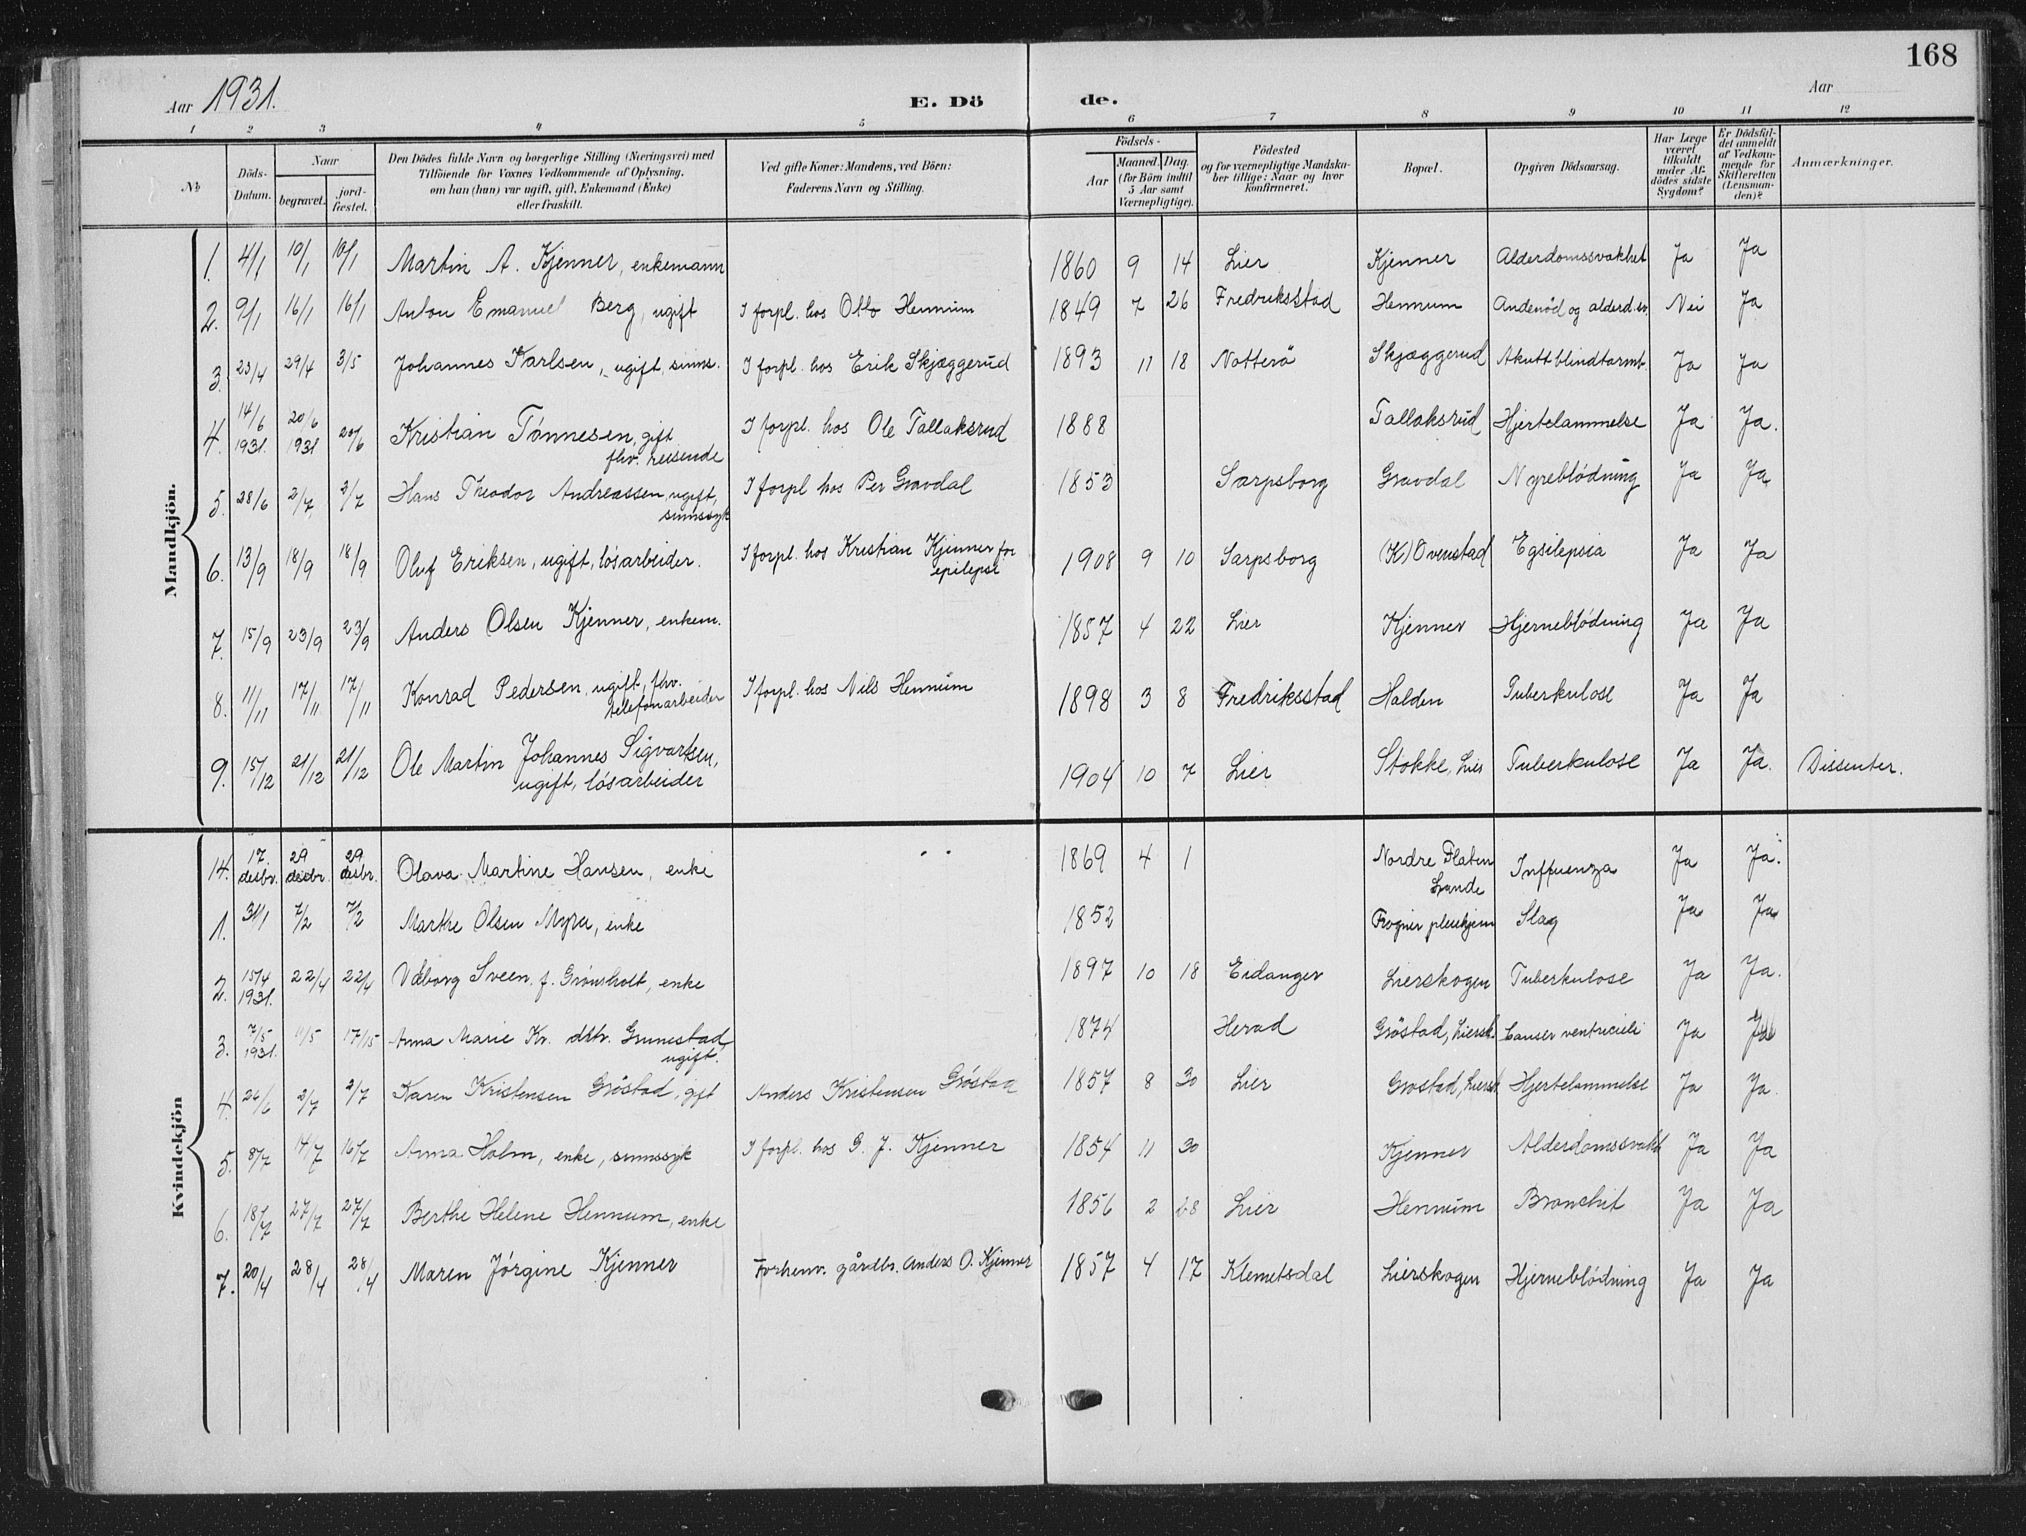 168
Aar 1931.
E. Dö de.
Aar
1 2 3 4 5 6 7 8 9 10 11 12
No
Döds-Datum.
Naar
begravet.
jord-fæstet.
Den Dödes fulde Navn og borgerlige Stilling (Næringsvei) med
Tilföiende for Voxnes Vedkommende af Oplysning,
om han (hun) var ugift, gift, Enkemand (Enke)
eller fraskilt.
Ved gifte Koner: Mandens, ved Börn:
Faderens Navn og Stilling.
Födsels-
Aar
Maaned. Dag.
(for Börn indtil
5 Aar samt
Værnepligtige).
Födested
og for værnepligtige Mandska-
ber tillige: Naar og hvor
konfirmeret.
Bopæl.
Opgiven Dödsaarsag.
Har Læge
været
tilkaldt
under Af-
dödes sidste
Sygdom?
Er Dödsfal-
det anmeldt
af Vedkom-
mende for
Skifteretten
(Lensman-
den)?
Anmærkninger.
Mandkjön.
1. 4/1 10/1 10/1 Martin A. Kjenner, enkemann 1860 9 14 Lier Kjenner Alderdomssvakhet Ja Ja
2. 9/1 16/1 16/1 Anton Emanuel Berg, ugift I forpl. hos Otto Hennum 1849 7 26 Fredriksstad Hennum Andenød og alderd.sv. Nei Ja
3. 23/4 29/4 3/5 Johannes Karlsen, ugift, sinns. I forpl. hos Erik Skjæggerud 1893 11 18 Nøtterö Skjæggerud Akutt blindtarmb. Ja Ja
4. 14/6 1931. 20/6 1931 20/6 Kristian Tønnesen, gift fhv. reisende I forpl. hos Ole Tallaksrud 1888 Tallaksrud Hjertelammelse Ja Ja.
5. 28/6 2/7 2/7 Hans Theodor Andreassen, ugift, sinnssyk I forpl hos Per Gravdal 1853 Sarpsborg Gravdal Nyreblödning Ja Ja
6. 13/9 18/9 18/9 Oluf Eriksen, ugift, lösarbeider. I forpl. hos Kristian Kjenner for epilepsi 1908 9 10 Sarpsborg (K) Ovenstad Egsilepsia Ja Ja
7. 15/9 23/9 23/9 Anders Olsen Kjenner, enkem. 1857 4 22 Lier Kjenner Hjerneblödning Ja Ja
8. 11/11 17/11 17/11 Konrad Pedersen, ugift, fhv. telefonarbeider I forpl. hos Nils Hennum 1898 3 8 Fredriksstad Halden Tuberkulose Ja Ja
9. 15/12 21/12 21/12 Ole Martin Johannes Sigvartsen, ugift, lösarbeider 1904 10 7 Lier Stokke, Lier Tuberkulose Ja Ja. Dissenter.
Kvindekjön
14. 17 desbr. 29 desbr. 29 desbr. Olava Martine Hansen, enke 1869 4 1 Nordre Flaten Influenza Ja Ja.
1. 31/1 7/2 7/2 Marthe Olsen Myra, enke 1852 Frogner pleiehjem Slag Ja Ja
2. 15/4 1931. 22/4 22/4 Valborg Sveen f. Grönsholt, enke 1897 10 18 Eidanger Lierskogen Tuberkulose Ja Ja.
3. 7/5 1931. 11/5 17/5 Anna Marie Kr. dttr. Grunestad, ugift. 1874 Herad Gröstad, Liersk. Canser ventriculi Ja Ja
4. 26/6 2/7 2/7 Karen Kristensen Gröstad, gift Anders Kristensen Gröstad 1857 8 30 Lier Grostad, Liersk. Hjertelammelse Ja Ja
5. 8/7 14/7 16/7 Anna Holm, enke, sinnssyk I forpl. hos G. J. Kjenner 1854 11 30 Kjenner Alderdomssvakh Ja Ja
6. 18/7 27/7 27/7 Berthe Helene Hennum, enke 1856 2 28 Lier Hennum Bronchit Ja Ja
7. 20/4 28/4 28/4 Maren Jörgine Kjenner Forhenv. gårdbr. Anders O. Kjenner 1857 4 17 Klemetsdal Lierskogen Hjerneblödning Ja Ja